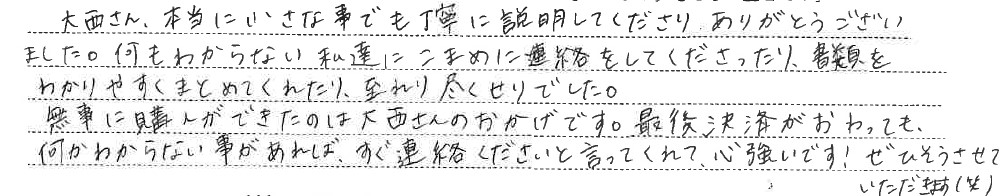 大西さん、本当に小さな事でも丁寧に説明してくださり、ありがとうござい
ました。何もわからない私達にこまめに連絡をしてくださったり、書類を
わかりやすくまとめてくれたり、至れり尽くせりでした。
無事に購入ができたのは大西さんのおかげです。最後決済がおわっても、
何かわからない事があれば、すぐ連絡くださいと言ってくれて、心強いです！ぜひそうさせて
いただきます(笑)